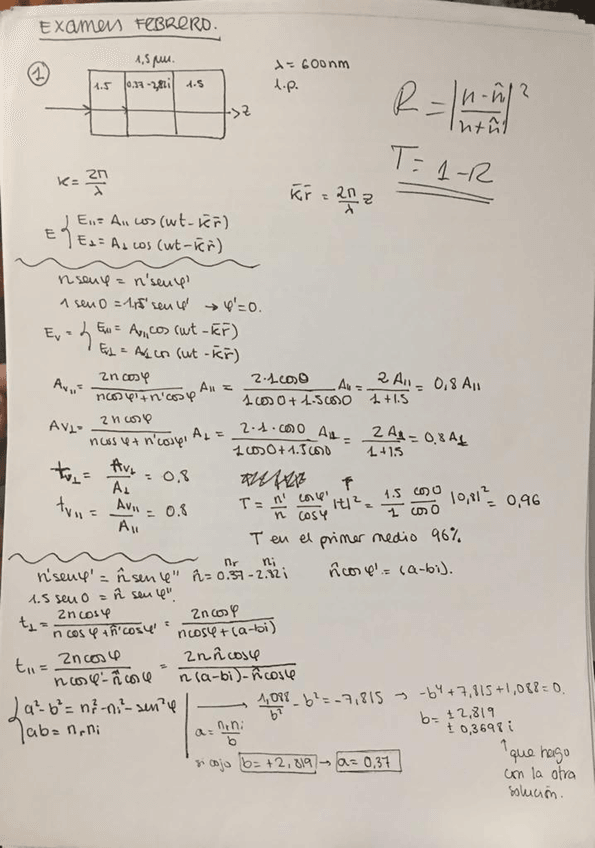 EXAMEN FEBRERO.
① 1,5 μm. λ = 600nm
1.5 0.37-2,82i 1.5 l.p.
z
R = |n - n̂ / n + n̂|²
T = 1-R
K = 2π/λ K̄r̄ = 2π/λ z
E { E₁₁ = A₁₁ cos (wt - K̄r̄)
E⊥ = A⊥ cos (wt - K̄r̄)
n senφ = n' senφ'
1 sen0 = 1,5' senφ' → φ'=0.
Ev = { E₁₁ = Av₁₁ cos (wt - K̄r̄)
E⊥ = A⊥ cos (wt - K̄r̄)
Av₁₁ = 2n cosφ / ncosφ' + n'cosφ A₁₁ = 2·1cos0 / 1cos0 + 1.5cos0 A₁₁ = 2A₁₁ / 1+1.5 = 0,8 A₁₁
Av⊥ = 2n cosφ / ncosφ + n'cosφ' A⊥ = 2·1·cos0 / 1cos0+1.5cos0 A⊥ = 2A⊥ / 1+1.5 = 0.8 A⊥
tv⊥ = Av⊥ / A⊥ = 0.8
tv₁₁ = Av₁₁ / A₁₁ = 0.8 T = n'/n cosφ'/cosφ |t|² = 1.5/1 cos0/cos0 |0,8|² = 0,96
T en el primer medio 96%
nr ni
n'senφ' = n̂ senφ'' n̂ = 0.37-2.82i n̂cosφ' = (a-bi).
1.5 sen0 = n̂ senφ''.
t⊥ = 2n cosφ / n cosφ + n̂'cosφ' = 2n cosφ / ncosφ+(a-bi)
t₁₁ = 2ncosφ / n cosφ' - n̂ cosφ = 2n n̂cosφ / n(a-bi) - n̂cosφ
{ a²-b² = nr²-ni²-sen²φ → 1,088/b² - b² = -7,815 → -b⁴+7,815+1,088=0.
ab = nr ni a = nr ni / b b = ±2,819
± 0,3698 i
si cojo b = +2,819 → a = 0,37
↑ que hago
con la otra
solución.